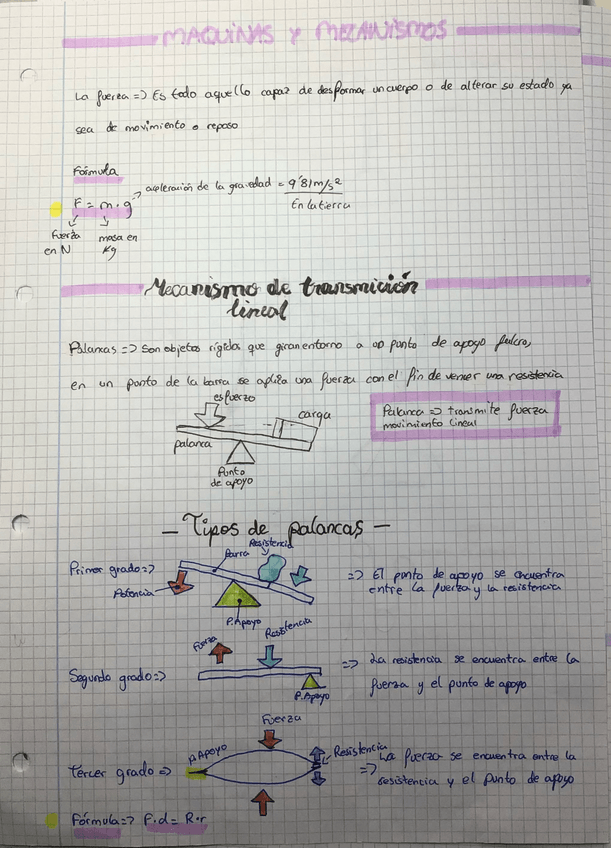 MAQUINAS Y MECANISMOS
La fuerza => Es todo aquello capaz de desformar un cuerpo o de alterar su estado ya
sea de movimiento o reposo
Fórmula
F = m·g → aceleración de la gravedad = 9'81 m/s²
En la tierra
Fuerza en N
masa en Kg
Mecanismo de transmición
lineal
Palancas => Son objetos rígida que giran entorno a un punto de apoyo fulcro,
en un punto de la barra se apliza una fuerza con el fin de vencer una resistencia
esfuerzo
carga
palanca
Punto
de apoyo
Palanca => transmite fuerza
movimiento lineal
- Tipos de palancas -
Primer grado =>
Potencia
Barra
Resistencia
P.Apoyo
=> El punto de apoyo se encuentra
entre la fuerza y la resistencia
Segundo grado =>
Fuerza
Resistencia
P.Apoyo
=> La resistencia se encuentra entre la
fuerza y el punto de apoyo
Tercer grado =>
P.Apoyo
Fuerza
Resistencia
=> La fuerza se encuentra entre la
resistencia y el punto de apoyo
Fórmula => F·d = R·r